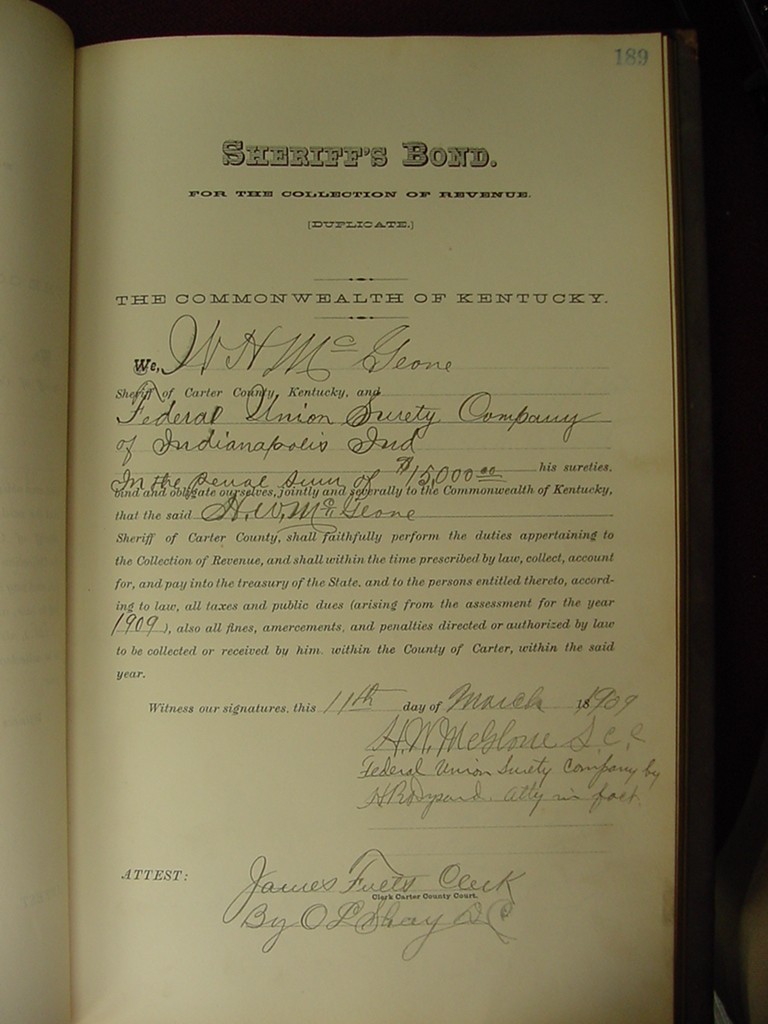 189
SHERIFF'S BOND.
FOR THE COLLECTION OF REVENUE.
(DUPLICATE.)
THE COMMONWEALTH OF KENTUCKY.
We, W H McGeone
Sheriff of Carter County, Kentucky, and
Federal Union Surety Company
of Indianapolis Ind
In the penal sum of $15,000 00 his sureties,
bind and obligate ourselves, jointly and severally to the Commonwealth of Kentucky,
that the said H. W. McGeone
Sheriff of Carter County, shall faithfully perform the duties appertaining to
the Collection of Revenue, and shall within the time prescribed by law, collect, account
for, and pay into the treasury of the State, and to the persons entitled thereto, accord-
ing to law, all taxes and public dues (arising from the assessment for the year
1909), also all fines, amercements, and penalties directed or authorized by law
to be collected or received by him. within the County of Carter, within the said
year.
Witness our signatures, this 11th day of March 1909
H. W. McGlone S. C. C
Federal Union Surety Company by
H R Dysard. Atty in fact
ATTEST:
James Fuets Clerk
Clerk Carter County Court.
By O L Shay D C